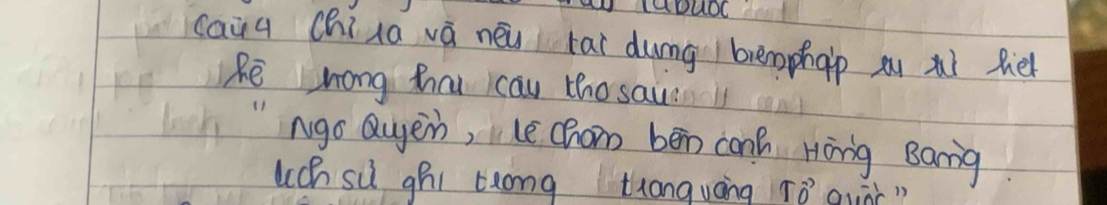 Câu 4 Chỉ ra và nêu tác dụng biện pháp tu từ liệt
kê trong hai câu thơ sau:
"Ngô Quyền, Lê Chân bên cạnh Hồng Bàng
Lịch sử ghi trong trang vàng Tổ quốc"